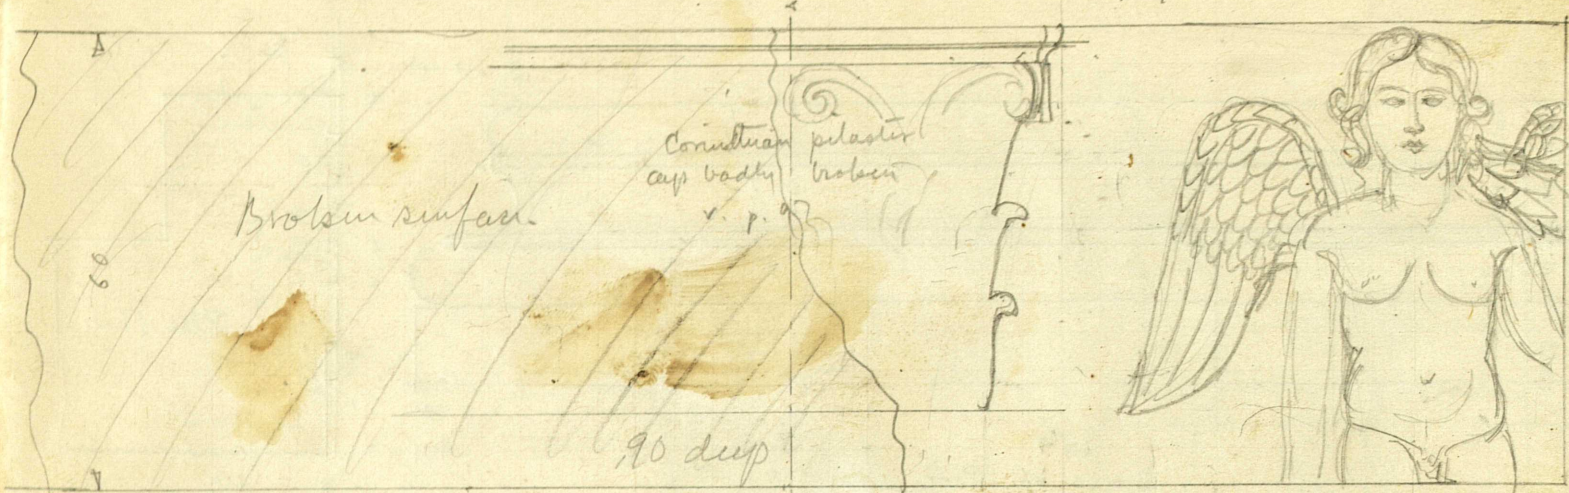 Broken surface.
Corinthian pilaster
cap badly broken
v. p. 9
.90 deep